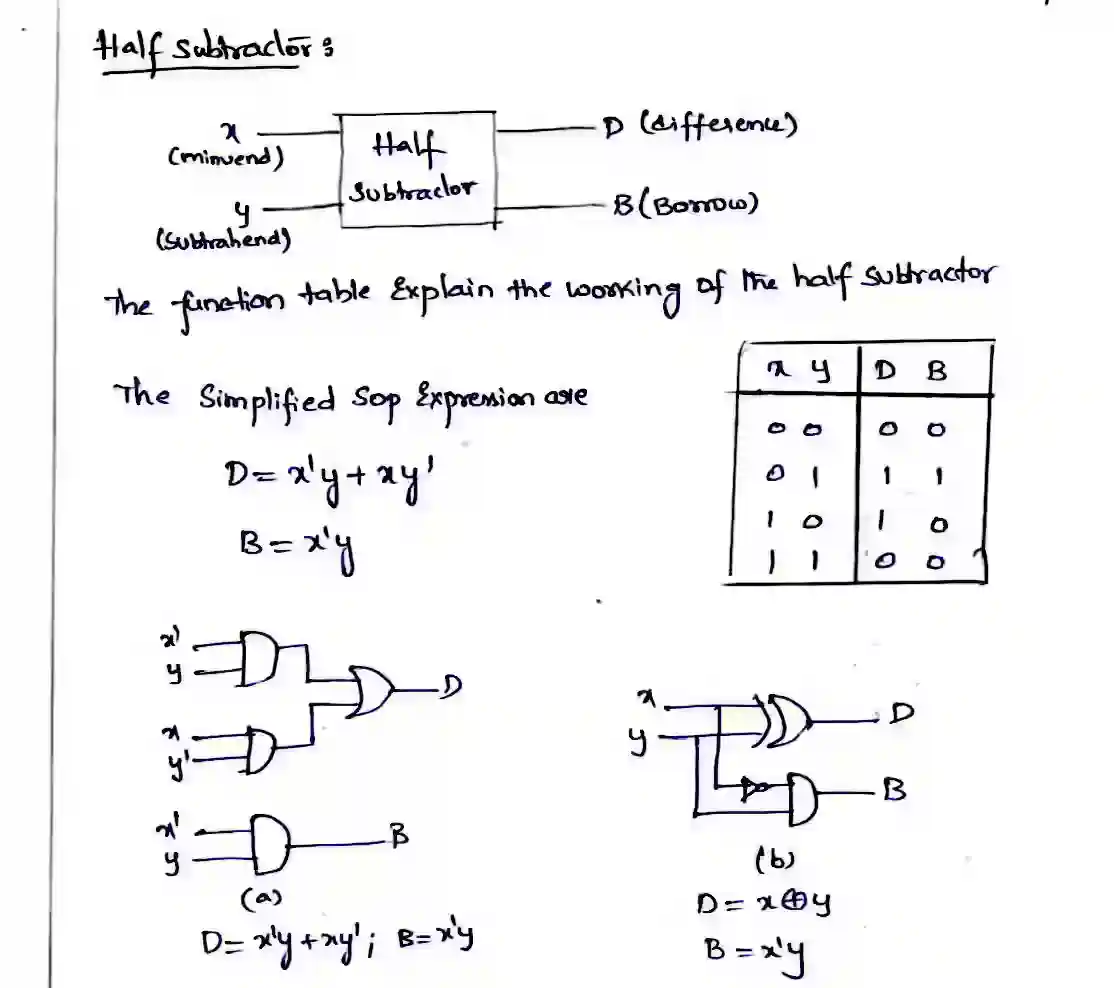 Half Subtractor :
x D (difference)
(minuend) Half
Subtractor
y B (Borrow)
(Subtrahend)
The function table Explain the working of the half subtractor
x y D B
The Simplified Sop Expression are
0 0 0 0
D = x'y + xy'
0 1 1 1
1 0 1 0
B = x'y
1 1 0 0
x'
y
D
x
y'
x'
y
B
(a)
D = x'y + xy' ; B = x'y
x
y
D
B
(b)
D = x ⊕ y
B = x'y